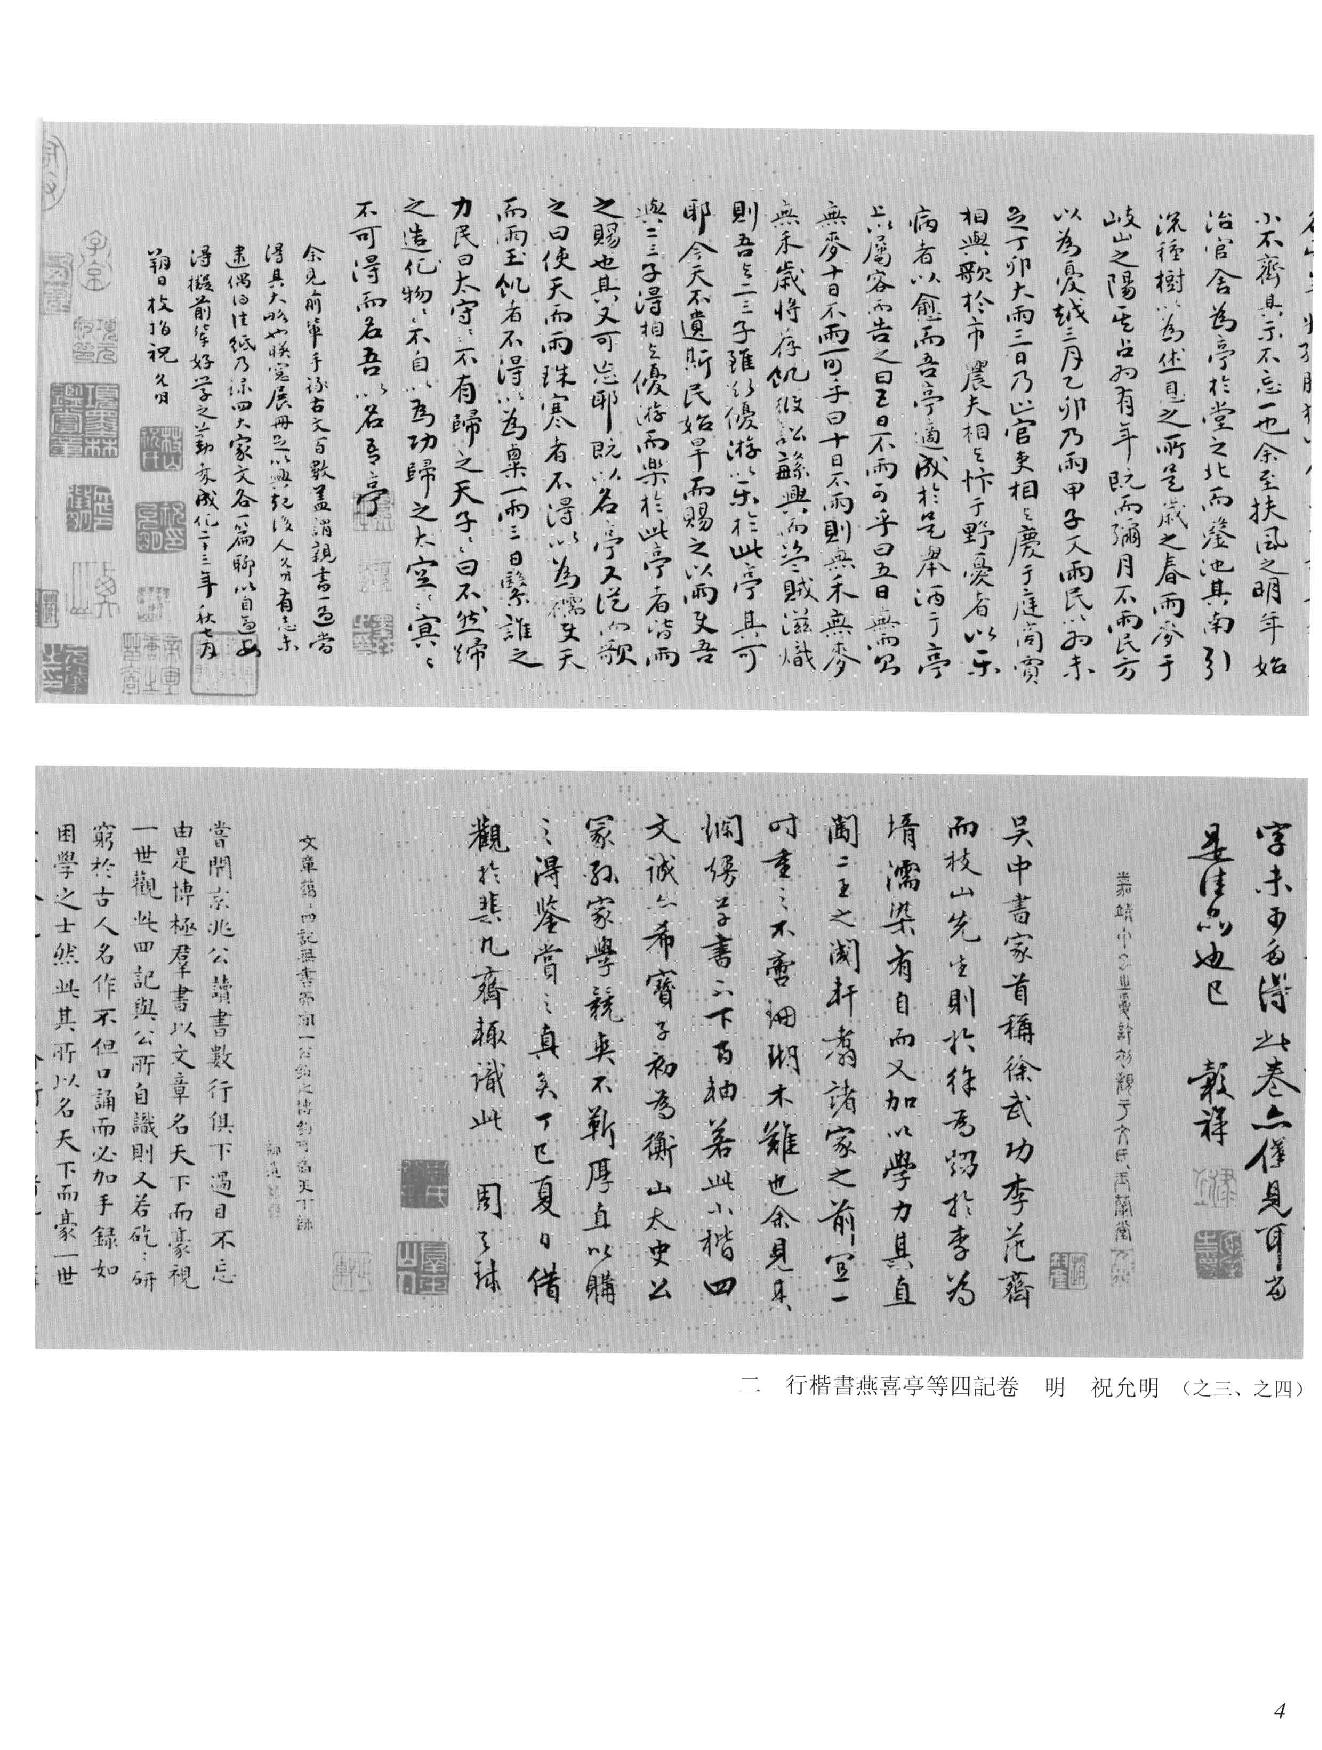 小不齊其示不忘一也余至扶風之明年始
治官舍為亭於堂之北而鑿池其南引
流種樹以為休息之所是歲之春雨麥于
岐山之陽其占為有年既而彌月不雨民方
以為憂越三月乙卯乃雨甲子又雨民以為未
足丁卯大雨三日乃止官吏相與慶于庭商賈
相與歌於市農夫相與忭于野憂者以樂
病者以愈而吾亭適成於是舉酒于亭
上以屬客而告之曰五日不雨可乎曰五日無雨則
無麥十日不雨可乎曰十日不雨則無禾無麥
無禾歲將荐飢獄訟繇興而盜賊滋熾
則吾與二三子雖欲優游以樂於此亭其可
耶今天不遺斯民始旱而賜之以雨使吾
與二三子得相與優游而樂於此亭者皆雨
之賜也其又可忘耶既以名亭又從而歌
之曰使天而雨珠寒者不得以為襦使天
而雨玉飢者不得以為粟一雨三日繄誰之
力民曰太守太守不有歸之天子天子曰不然歸
之造化造物不自以為功歸之太空太空冥冥
不可得而名吾以名吾亭
余見前輩手錄古文百數蓋謂親書一過當
得其大略也暎窓展冊足以興起後人允明有志未
逮偶得佳紙乃錄四大家文各一篇聊以自
得擬前輩好學之勤家成化二十三年秋七月
朔日枝指祝允明
字未可多得此卷亦僅見耳
是佳品也已 穀祥
吳中書家首稱徐武功李范菴
而枝山先生則於徐為甥於李為
壻濡染有自而又加以學力其直
闖二王之閫軒翥諸家之前宜一
時重之不啻珊瑚木難也余見其
爛熳草書不下百軸若此小楷四
文誠亦希寶子初為衡山太史公
冢孫家學競爽不靳厚直以購
之得鑒賞之真矣丁巳夏日借
觀於棐几齋輒識此 周天球
嘗聞京兆公讀書數行俱下過目不忘
由是博極羣書以文章名天下而豪視
一世觀此四記與公所自識則又若矻矻研
窮於古人名作不但口誦而必加手錄如
困學之士然此其所以名天下而豪一世
二 行楷書燕喜亭等四記卷 明 祝允明 (之三、之四)
4